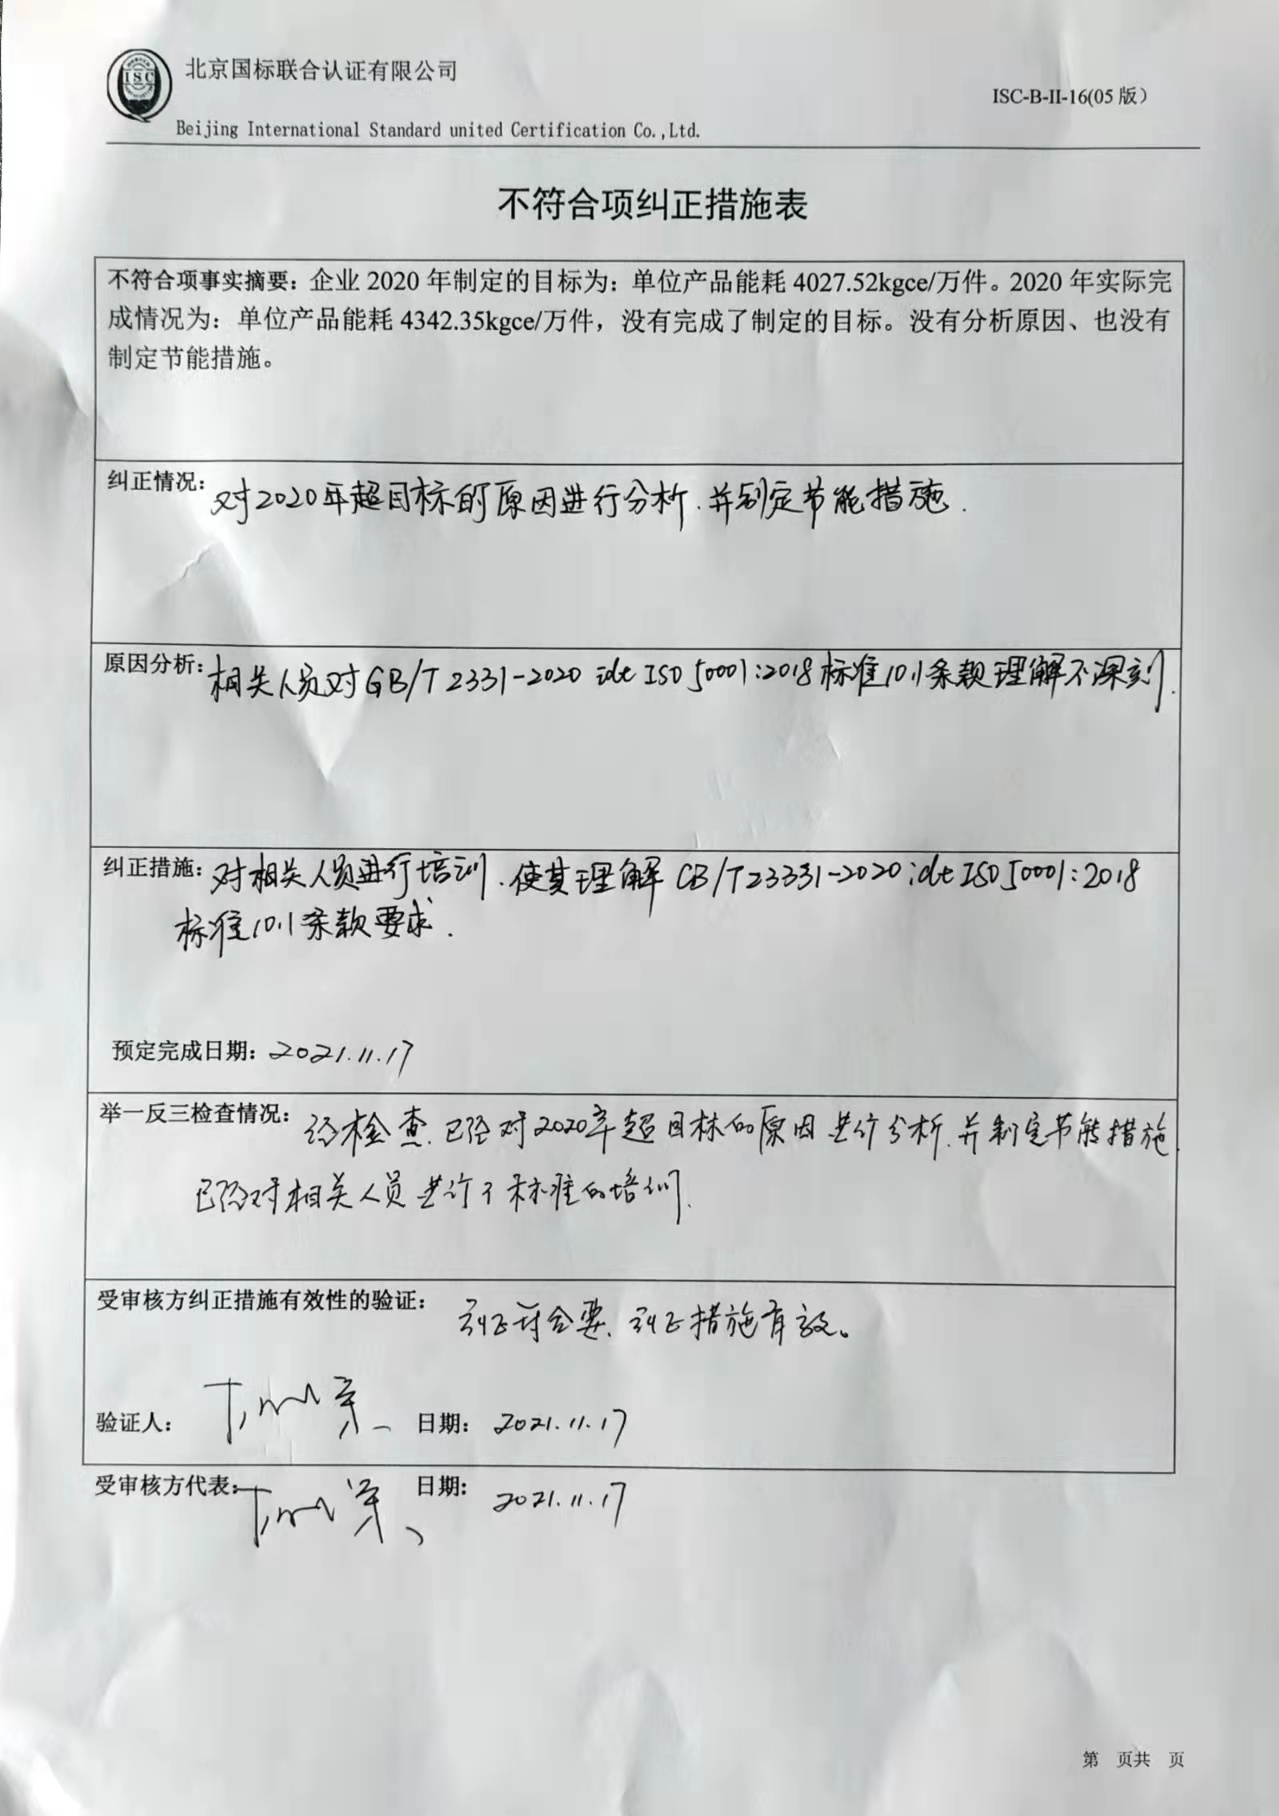 ISC
北京国标联合认证有限公司
ISC-B-II-16(05 版）
Beijing International Standard united Certification Co.,Ltd.
不符合项纠正措施表
不符合项事实摘要：企业 2020 年制定的目标为：单位产品能耗 4027.52kgce/万件。2020 年实际完
成情况为：单位产品能耗 4342.35kgce/万件，没有完成了制定的目标。没有分析原因、也没有
制定节能措施。
纠正情况：对2020年超目标的原因进行分析，并制定节能措施.
原因分析：相关人员对GB/T 2331-2020 idt ISO 50001:2018标准10.1条款理解不深刻.
纠正措施：对相关人员进行培训，使其理解 GB/T23331-2020 idt ISO 50001:2018
标准10.1条款要求.
预定完成日期：2021.11.17
举一反三检查情况：经检查，已经对2020年超目标的原因进行分析，并制定节能措施
已经对相关人员进行了标准的培训.
受审核方纠正措施有效性的验证：纠正符合要，纠正措施有效。
验证人： 日期：2021.11.17
受审核方代表： 日期：2021.11.17
第 页共 页